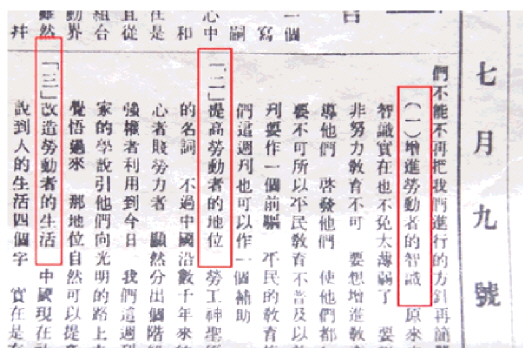 七月九號
一個
寫
嗣
心中
和
在是
直從
組台
動界
雖然
井
們不能不再把我們進行的方針再簡
(一)增進勞動者的智識 原來
智識實在也不免太薄弱了 要
非努力敎育不可 要想增進敎
導他們 啓發他們 使他們都
要不可所以平民敎育不普及以
刋要作一個前驅 平民的敎育
們這週刋也可以作一個補助
「二」提高勞動者的地位 勞工神聖
的名詞 不過中國沿數千年來
心者賤勞力者 顯然分出個階
強權者利用到今日 我們這週
家的學說引他們向光明的路上
覺悟過來 那地位自然可以提
「三」改造勞動者的生活 中國現在
說到人的生活四個字 實在是